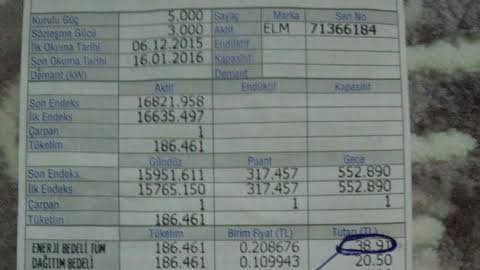 Kurulu Güç 5.000 Sayaç Marka Seri No
Sözleşme Gücü 3.000 Aktif ELM 71366184
İlk Okuma Tarihi 06.12.2015 Endüktif
Son Okuma Tarihi 16.01.2016 Kapasitif
Demant (kW) Demant
Aktif Endüktif Kapasitif
Son Endeks 16821.958
İlk Endeks 16635.497
Çarpan 1
Tüketim 186.461
Gündüz Puant Gece
Son Endeks 15951.611 317.457 552.890
İlk Endeks 15765.150 317.457 552.890
Çarpan 1 1 1
Tüketim 186.461
Tüketim Birim Fiyat (TL) Tutarı (TL)
ENERJİ BEDELİ TÜM 186.461 0.208676 38.91
DAĞITIM BEDELİ 186.461 0.109943 20.50